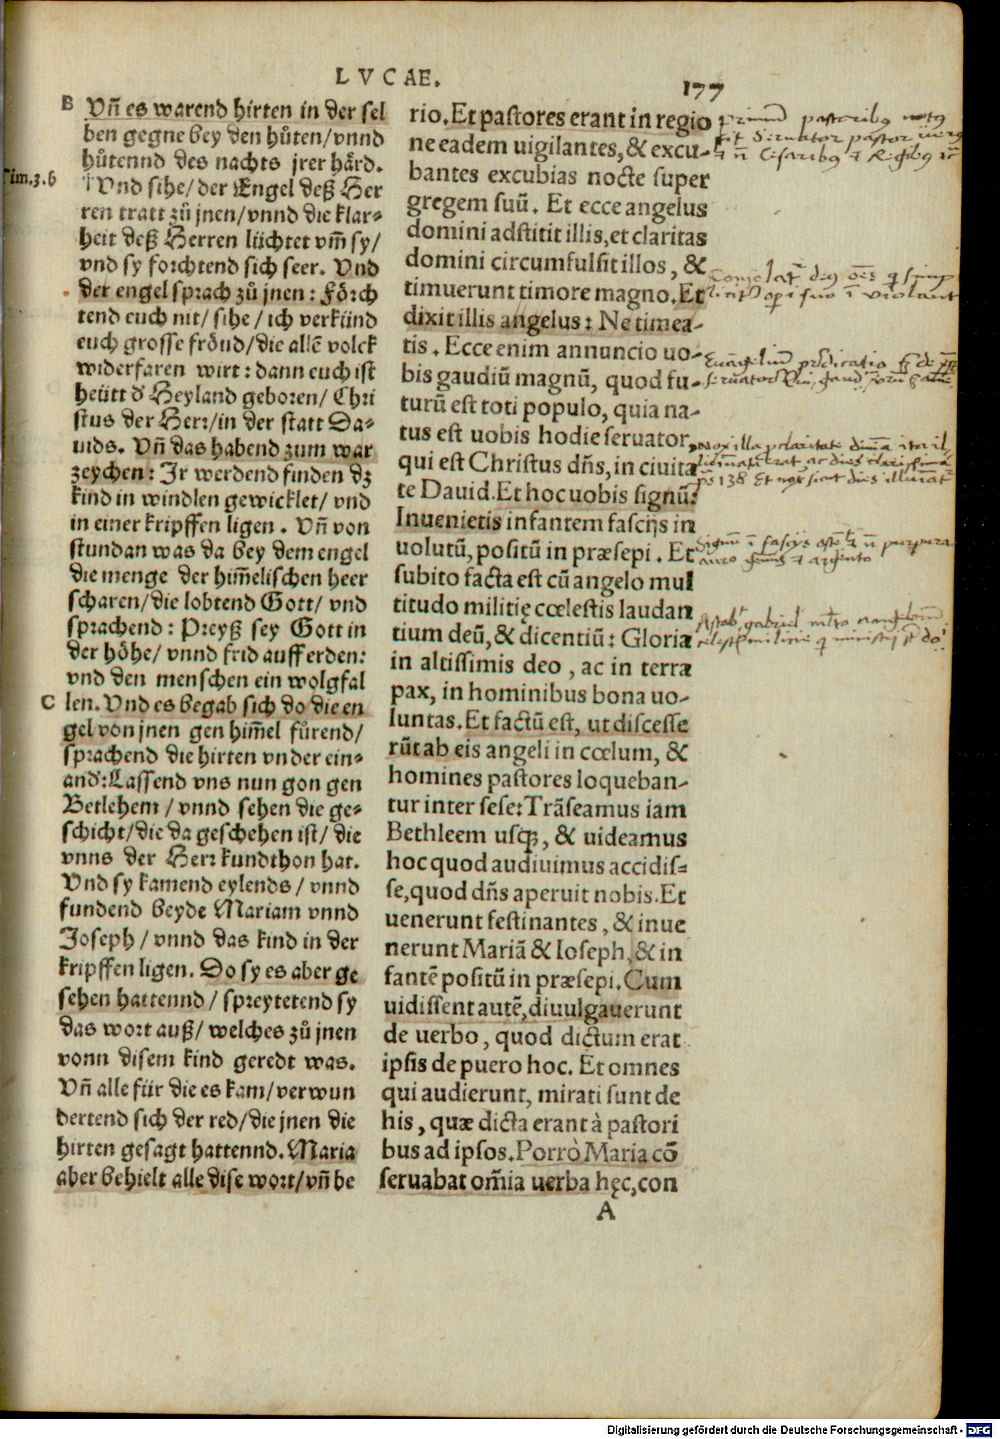 LVCAE.
177
B Vñ es warend hirten in der sel
ben gegne bey den hůten/vnnd
hůtennd des nachts jrer hård.
Tim.3.6
Vnd sihe/der Engel deß Her
ren tratt zů jnen/vnnd die klar⸗
heit deß Herren lüchtet vm̃ sy/
vnd sy forchtend sich seer. Vnd
der engel sprach zů jnen: Förch
tend euch nit/ sihe/ ich verkünd
euch grosse fröud/die allẽ volck
widerfaren wirt: dann euch ist
heütt d' Heyland geboren/ Chri
stus der Herr/in der statt Da⸗
uids. Vñ das habend zum war
zeychen: Jr werdend finden dz
kind in windlen gewicklet/ vnd
in einer kripffen ligen. Vñ von
stundan was da bey dem engel
die menge der him̃elischen heer
scharen/die lobtend Gott/ vnd
sprachend: Preyß sey Gott in
der höhe/ vnnd frid auff erden:
vnd den menschen ein wolgfal
C len. Vnd es begab sich do die en
gel von jnen gen him̃el fůrend/
sprachend die hirten vnder ein⸗
and': Lassend vns nun gon gen
Betlehem/ vnnd sehen die ge⸗
schicht/die da geschehen ist/ die
vnns der Herr kundthon hat.
Vnd sy kamend eylends/ vnnd
fundend beyde Mariam vnnd
Joseph/ vnnd das kind in der
kripffen ligen. Do sy es aber ge
sehen hattennd/ spreytetend sy
das wort auß/ welches zů jnen
vonn disem kind geredt was.
Vñ alle für die es kam/verwun
dertend sich der red/die jnen die
hirten gesagt hattennd. Maria
aber behielt alle dise wort/vñ be
rio. Et pastores erant in regio
ne eadem uigilantes, & excu-
bantes excubias nocte super
gregem suũ. Et ecce angelus
domini adstitit illis, et claritas
domini circumfulsit illos, &
timuerunt timore magno. Et
dixit illis angelus: Ne timea-
tis. Ecce enim annuncio uo-
bis gaudiũ magnũ, quod fu-
turũ est toti populo, quia na-
tus est uobis hodie seruator,
qui est Christus dñs, in ciuita
te Dauid. Et hoc uobis signũ:
Inuenietis infantem fascijs in
uolutũ, positũ in præsepi. Et
subito facta est cũ angelo mul
titudo militię cœlestis laudan
tium deũ, & dicentiũ: Gloria
in altissimis deo, ac in terra
pax, in hominibus bona uo-
luntas. Et factũ est, ut discesse
rũt ab eis angeli in cœlum, &
homines pastores loqueban-
tur inter sese: Trãseamus iam
Bethleem usq;, & uideamus
hoc quod audiuimus accidis-
se, quod dñs aperuit nobis. Et
uenerunt festinantes, & inue
nerunt Mariã & Ioseph, & in
fantẽ positũ in præsepi. Cum
uidissent autẽ, diuulgauerunt
de uerbo, quod dictum erat
ipsis de puero hoc. Et omnes
qui audierunt, mirati sunt de
his, quæ dicta erant à pastori
bus ad ipsos. Porrò Maria cõ
seruabat om̃ia uerba hęc, con
A
Digitalisierung gefördert durch die Deutsche Forschungsgemeinschaft - DFG